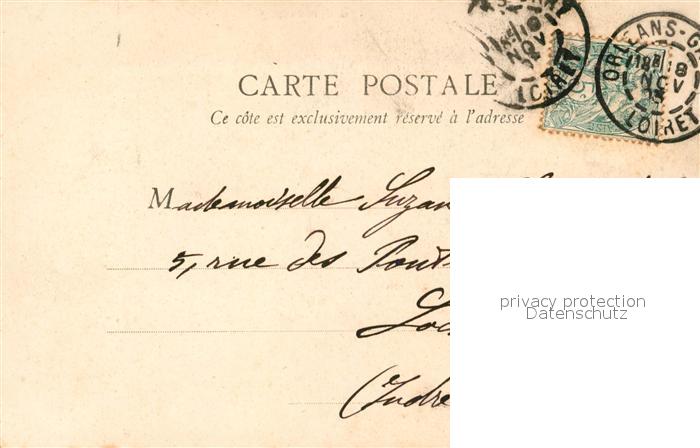 CARTE POSTALE
Ce côte est exclusivement réservé à l'adresse
ORLEANS-G
18
NOV
LOIRET
LOIRET
Mademoiselle Suzan
5, rue des Pont
Loc
(Indre
privacy protection
Datenschutz